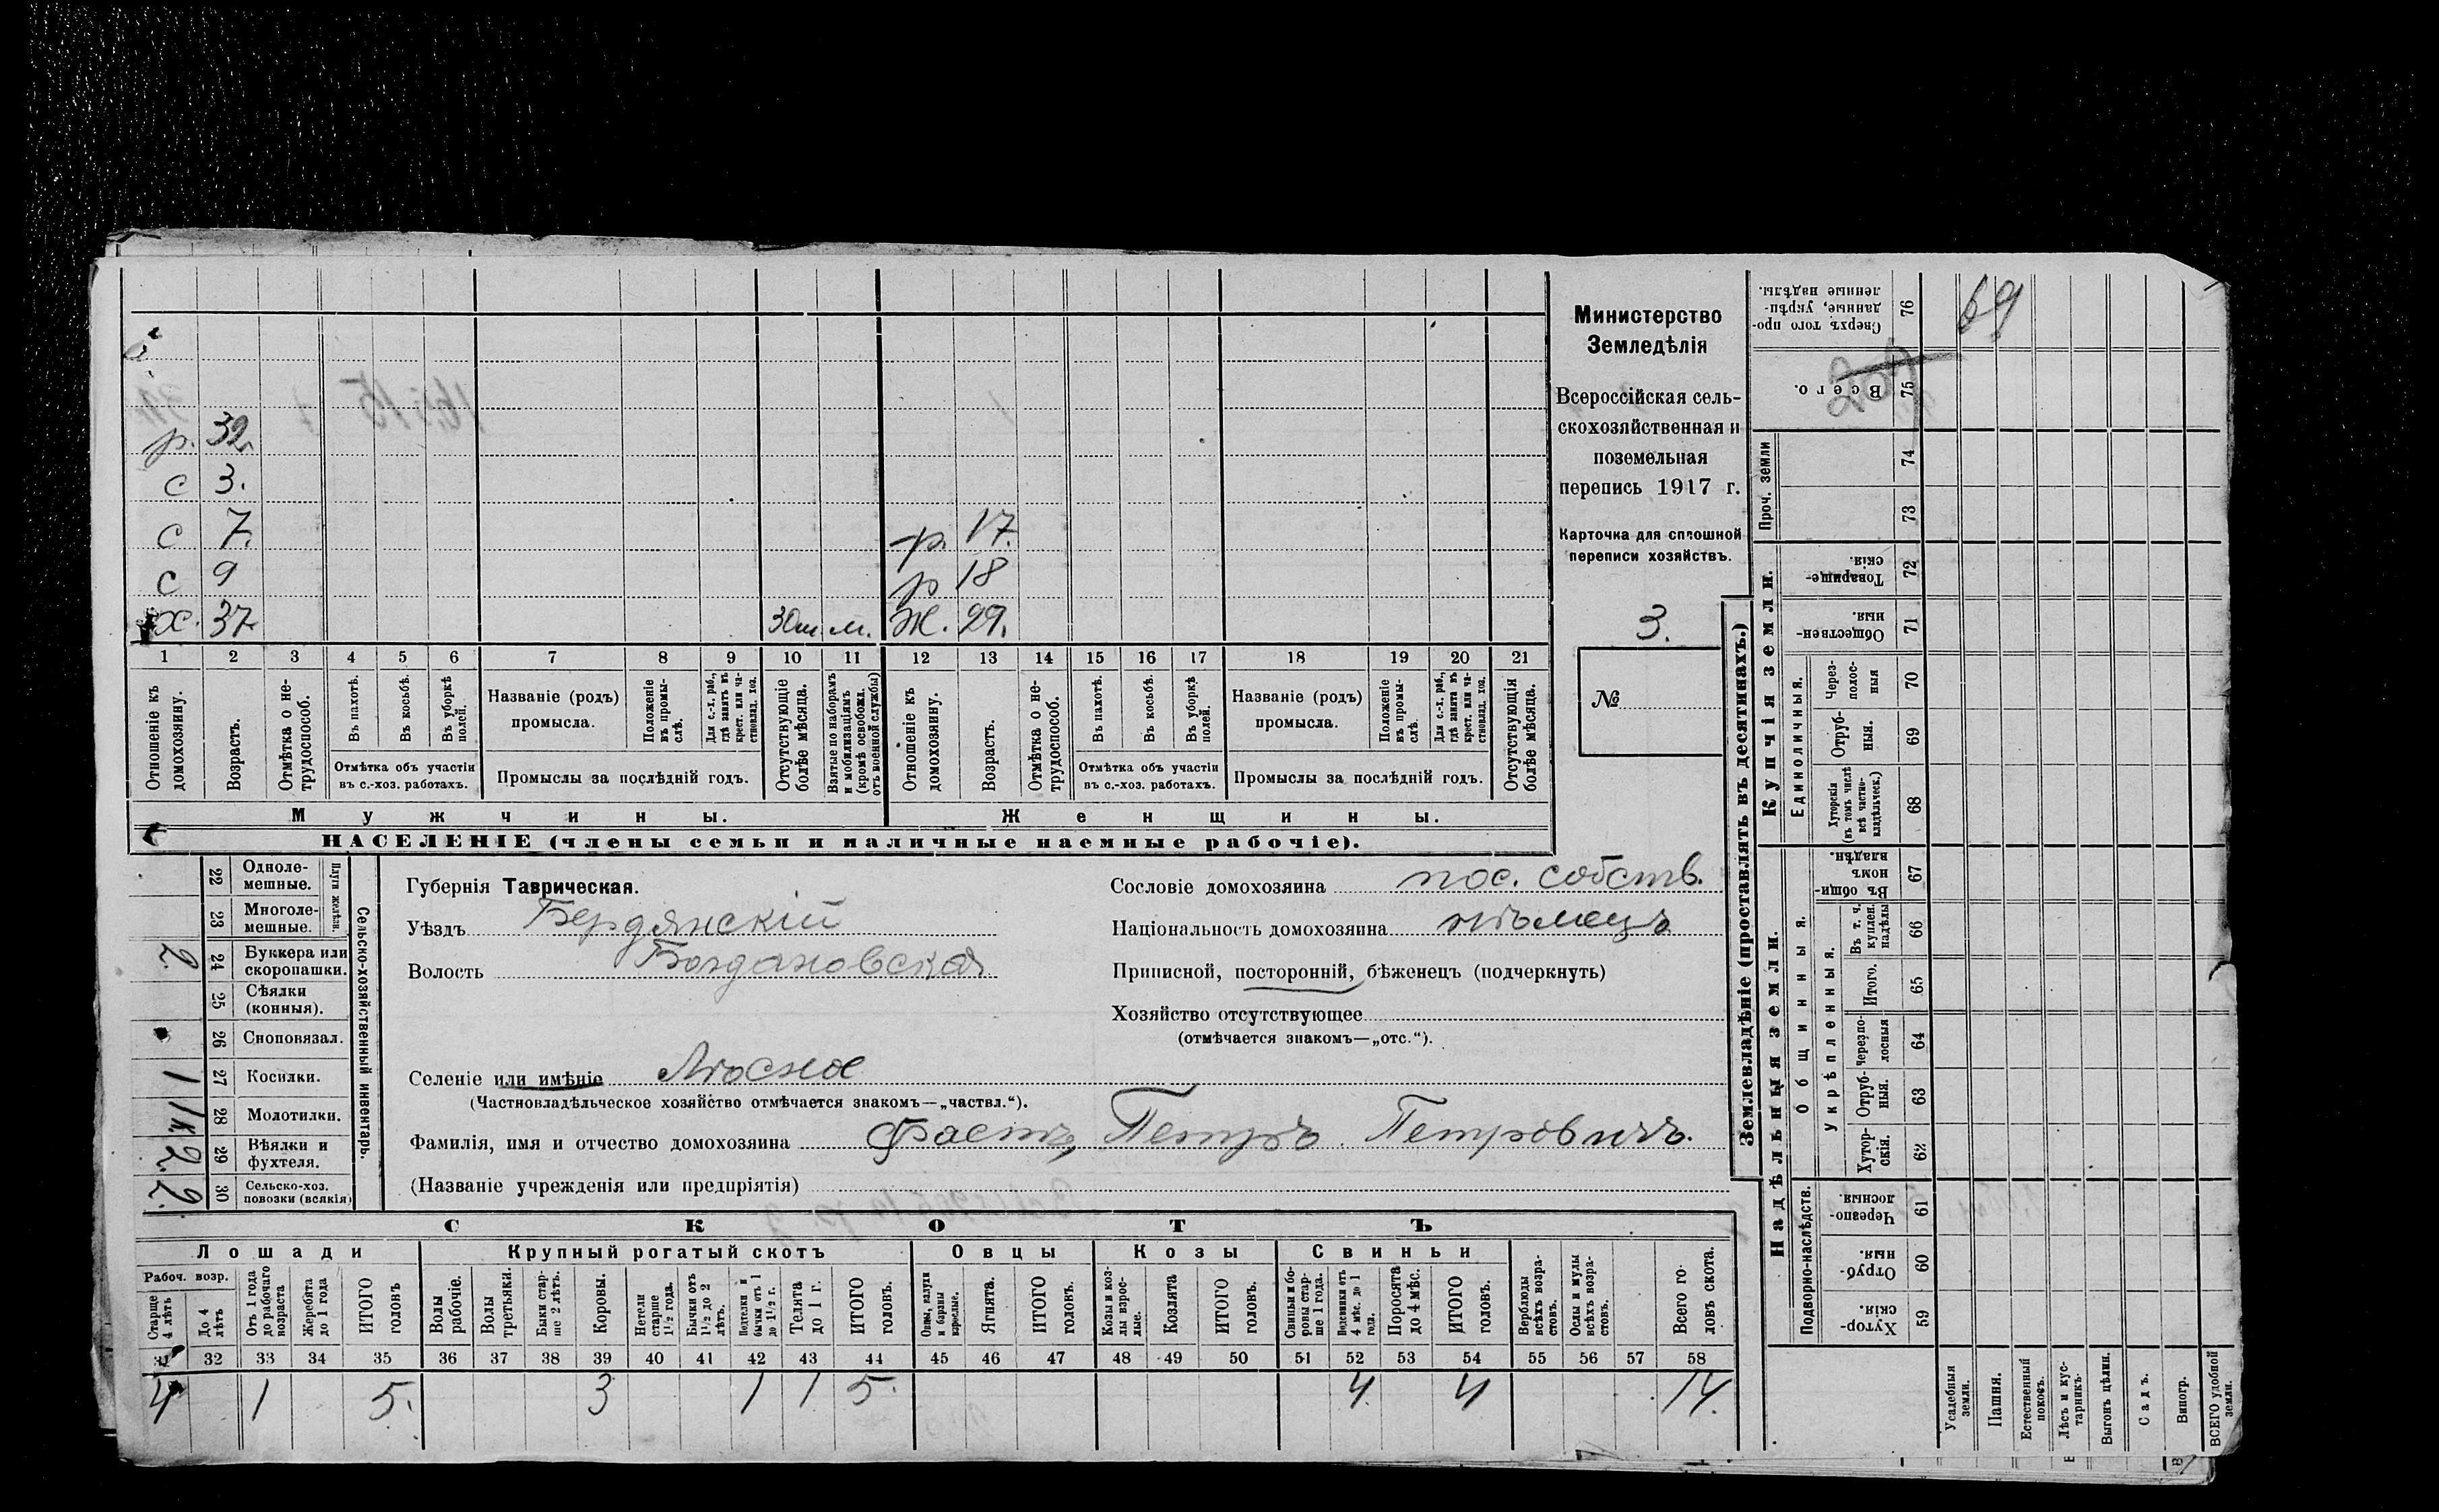 р. 32.
с 3.
с 7. р. 17.
с 9 р 18
х. 37. м. Ж. 29.
1 2 3 4 5 6 7 8 9 10 11 12 13 14 15 16 17 18 19 20 21
Отношеніе къ домохозяину.
Возрастъ.
Отмѣтка о не-трудоспособ.
Въ пахотѣ.
Въ косьбѣ.
Въ уборкѣ полей.
Отмѣтка объ участіи
въ с.-хоз. работахъ.
Названіе (родъ)
промысла.
Положеніе въ промы-слѣ.
Для с.-х. раб., гдѣ занятъ въ крест. или ча-стновлад. хоз.
Промыслы за послѣдній годъ.
Отсутствующіе болѣе мѣсяца.
Взятые по наборамъ и мобилизаціямъ (кромѣ освобожд. отъ военной службы)
Отношеніе къ домохозяину.
Возрастъ.
Отмѣтка о не-трудоспособ.
Въ пахотѣ.
Въ косьбѣ.
Въ уборкѣ полей.
Отмѣтка объ участіи
въ с.-хоз. работахъ.
Названіе (родъ)
промысла.
Положеніе въ промы-слѣ.
Для с.-х. раб., гдѣ занята въ крест. или ча-стновлад. хоз.
Промыслы за послѣдній годъ.
Отсутствующія болѣе мѣсяца.
Мужчины. Женщины.
НАСЕЛЕНІЕ (члены семьи и наличные наемные рабочіе).
Министерство
Земледѣлія
Всероссійская сель-
скохозяйственная и
поземельная
перепись 1917 г.
Карточка для сплошной
переписи хозяйствъ.
3.
№
22 Одноле-мешные.
23 Многоле-мешные.
Плуги желѣзн.
2. 24 Буккера или скоропашки.
25 Сѣялки (конныя).
26 Сноповязал.
1 27 Косилки.
1 к. 28 Молотилки.
2. 29 Вѣялки и фухтеля.
2. 30 Сельско-хоз. повозки (всякія)
Сельско-хозяйственный инвентарь.
Губернія Таврическая.
Уѣздъ Бердянскій
Волость Богдановская
Селеніе или имѣніе
(Частновладѣльческое хозяйство отмѣчается знакомъ—„частвл.“).
Фамилія, имя и отчество домохозяина Фастъ Петръ Петровичъ.
(Названіе учрежденія или предпріятія)
Сословіе домохозяина пос. собств.
Національность домохозяина нѣмецъ
Приписной, посторонній, бѣженецъ (подчеркнуть)
Хозяйство отсутствующее
(отмѣчается знакомъ—„отс.“).
СКОТЪ
Лошади Крупный рогатый скотъ Овцы Козы Свиньи
Рабоч. возр.
Старше 4 лѣтъ
До 4 лѣтъ
Отъ 1 года до рабочаго возраста
Жеребята до 1 года
ИТОГО головъ
Волы рабочіе.
Волы третьяки.
Быки стар-ше 2 лѣтъ.
Коровы.
Нетели старше 1½ года.
Бычки отъ 1½ до 2 лѣтъ.
Подтелки и бычки отъ 1 до 1½ г.
Телята до 1 г.
ИТОГО головъ.
Овцы, валухи и бараны взрослые.
Ягнята.
ИТОГО головъ.
Козы и коз-лы взрос-лые.
Козлята
ИТОГО головъ.
Свиньи и бо-ровы стар-ше 1 года.
Подсвинки отъ 4 мѣс. до 1 года.
Поросята до 4 мѣс.
ИТОГО головъ.
Верблюды всѣхъ возра-стовъ.
Ослы и мулы всѣхъ возра-стовъ.
Всего го-ловъ скота.
31 32 33 34 35 36 37 38 39 40 41 42 43 44 45 46 47 48 49 50 51 52 53 54 55 56 57 58
4 1 5. 3 1 1 5. 4. 4 14.
Землевладѣніе (проставлять въ десятинахъ.)
Купчія земли.
Надѣльныя земли.
Сверхъ того про-данные, укрѣп-ленные надѣлы. 76 69
Всего. 75
Проч. земли
74
73
Товарище-скія. 72
Обществен-ныя. 71
Единоличныя.
Через-полос-ныя 70
Отруб-ныя. 69
Хуторскія (въ томъ числѣ всѣ частно-владѣльческ.) 68
Общинныя.
Въ общи-номъ владѣн. 67
Укрѣпленныя.
Въ т. ч. куплен. надѣлы 66
Итого. 65
Черезпо-лосныя 64
Отруб-ныя. 63
Хутор-скія. 62
Подворно-наслѣдств.
Черезпо-лосныя. 61
Отруб-ныя. 60
Хутор-скія. 59
Усадебныя земли.
Пашня.
Естественный покосъ.
Лѣсъ и кус-тарникъ.
Выгонъ цѣлин.
Садъ.
Виногр.
ВСЕГО удобной земли.